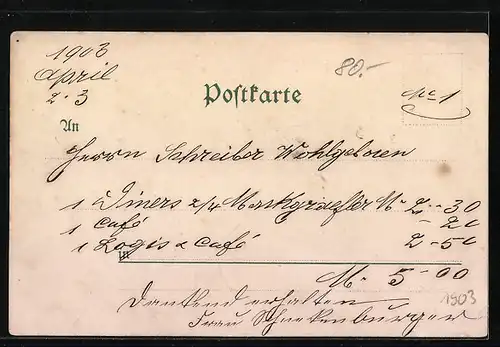 1903
April
2.3
80.-
Postkarte
No 1
An
Herrn Schreiber Wohlgeboren
1 Diners 2/4 Markgräfler M. 2-30
1 Café - 20
1 Logis & Café 2-50
M. 5-00
Dankend erhalten
Frau Schneckenburger
1903